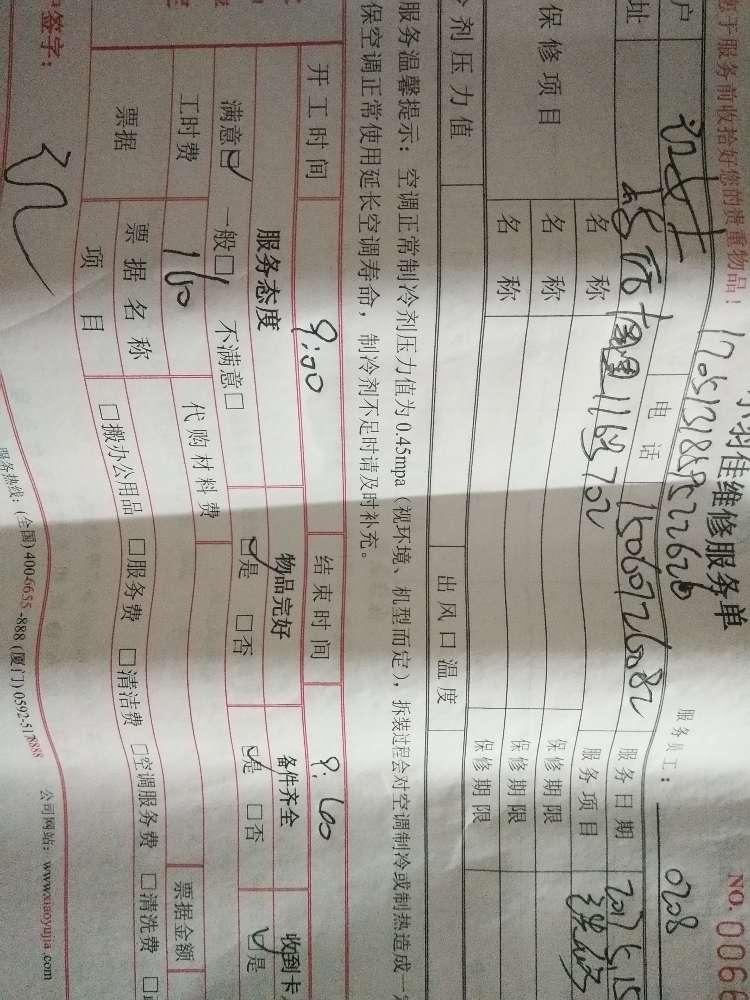 您于服务前收拾好您的贵重物品!
小羽佳维修服务单
NO. 0066
服务员工: 0208
户
电话 15060726082
服务日期 2017.5.15
址
1165702
服务项目
保修项目
名称
保修期限
名称
保修期限
名称
保修期限
剂压力值
出风口温度
服务温馨提示:空调正常制冷剂压力值为0.45mpa(视环境、机型而定),拆装过程会对空调制冷或制热造成一
保空调正常使用延长空调寿命,制冷剂不足时请及时补充。
开工时间 9:00 结束时间
服务态度 物品完好 备件齐全 收到卡
满意☑ 一般□ 不满意□ ☑是 □否 ☑是 □否 ☑是
工时费 160 代购材料费
票据 票据名称 票据金额
项目 □搬办公用品 □服务费 □清洁费 □空调服务费 □清洗费
签字:
服务热线:(全国)400-6655-888 (厦门)0592-5178888 公司网站:www.xiaoyujia.com